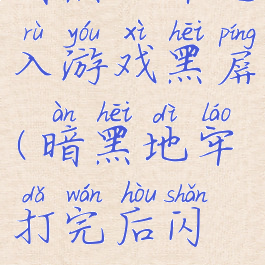 rù yóu xì hēi píng
入游戏黑屏
àn hēi dì láo
(暗黑地牢
dǎ wán hòu shǎn
打完后闪